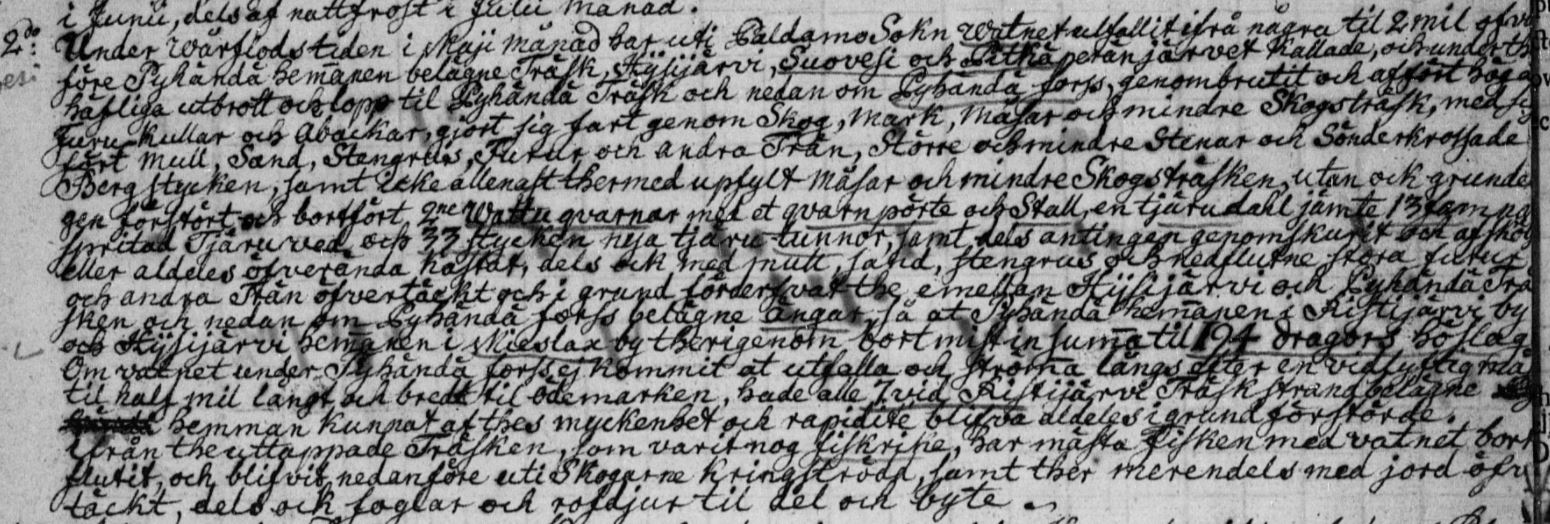 i Junii, dels af nattfrost i Julii månad.
2do: Under Wårflods tiden i Maji månad har uti Paldamo Sokn Watnet utfallit ifrå några til 2 mil ofvan
före Pyhändä hem̄anen belägne Träsk, Hyijärvi, Suovesi och Pitkä perän järvet kallade, och under th
häftliga utbrott och lopp til Pyhändä Träsk och nedan om Pyhändä forss, genombrutit och affört höga
furu kullar och åbackar, gjort sig fart genom Skog, mark, Måsar och mindre Skogsträsk, med sig
fört Mull, Sand, Stengrus, Furur och andra Trän, Större och mindre Stenar och Sönderkrossade
Bergstycken, samt icke allenast thermed upfylt Måsar och mindre Skogsträsken, utan ock grunde
gen förstört och bortfört 2ne Wattu qvarnar med et qvarnpörte och Stall, en tjärudahl jämte 13 famnar
Tjäruved och 33 stycken nya tjäru tunnor, samt dels antingen genomskurit och
eller aldeles öfverända kastat, dels ock med mull, sand, stengrus och nedflutne stora furur
och andra Trän öfvertäckt och i grund förderfvat the emellan Hyijärvi och Pyhändä Trä
sken och nedan om Pyhändä forss belägne ängar, så at Pyhändä hem̄anen i Ristijärvi by
och Hyijärvi hem̄anen i Mieslax by therigenom bortmist in sum̄a til 194 dragors höslag
Om vatnet under Pyhändä forss ej kommit at utfalla och ströma längs efter en vidlyftig
til half mil långt och bredt til ödemarken, hade alle 7 vid Ristijärvi Träsk strand belägne
hemman kunnat af thes myckenhet och rapidite blifva aldeles i grund förstörde.
ifrån the uttappade Träsken, som varit nog fiskrike, har mästa fisken med vatnet bort
flutit, och blifvit nedanföre uti Skogarne kringströdd, samt ther merendels med jord öfv
täckt, dels ock foglar och rofdjur til del och byte.